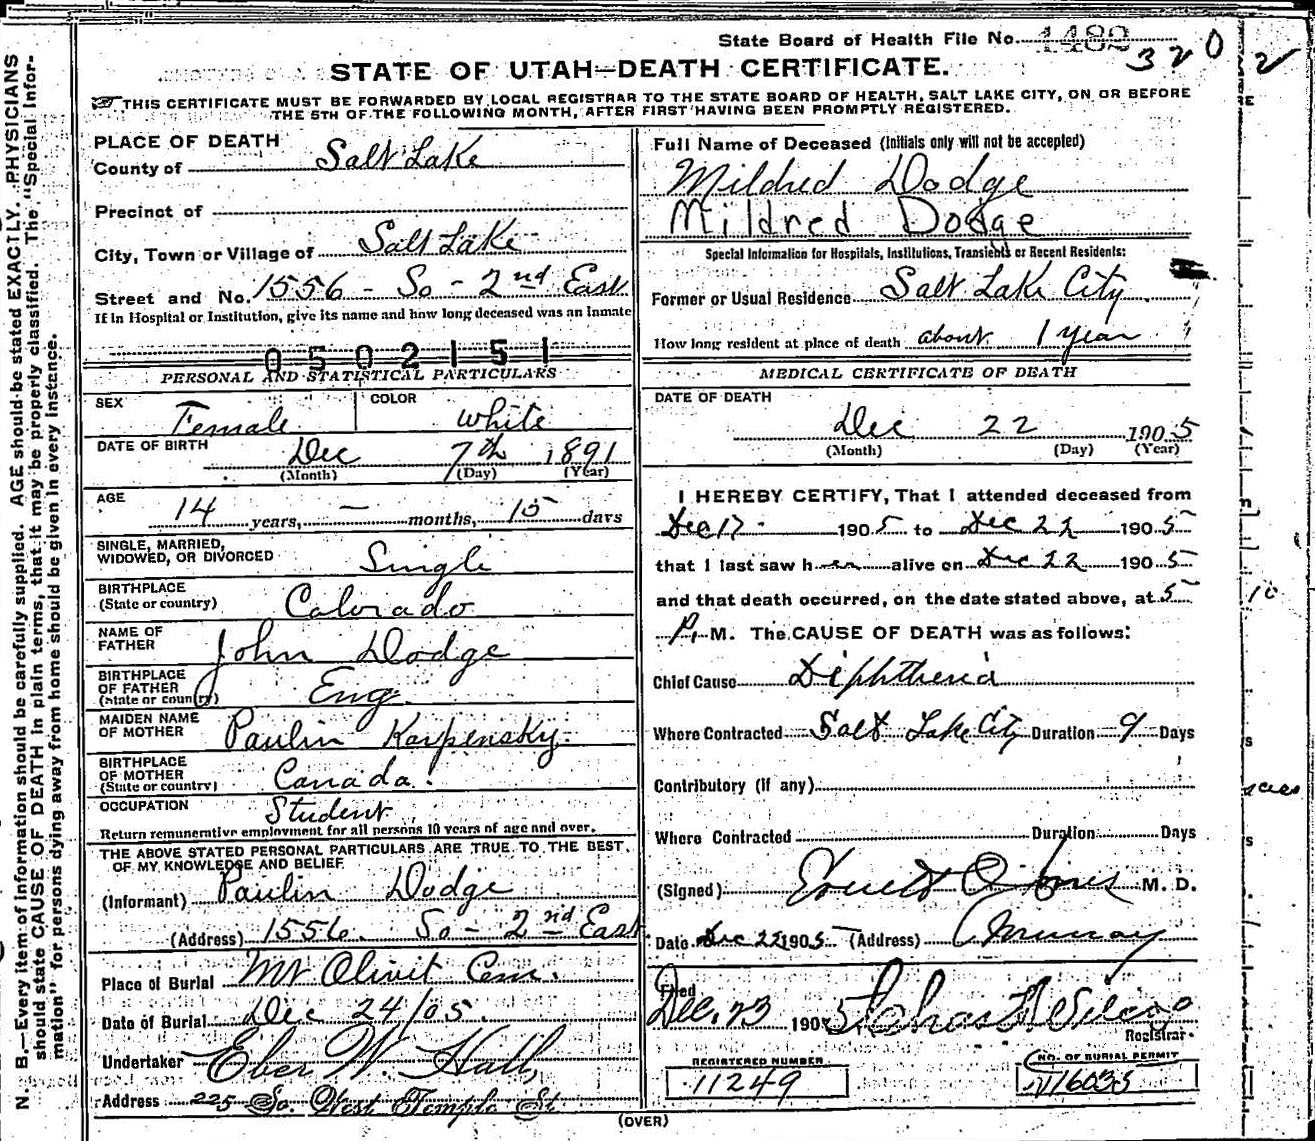 State Board of Health File No. 1489
320 2
STATE OF UTAH—DEATH CERTIFICATE.
THIS CERTIFICATE MUST BE FORWARDED BY LOCAL REGISTRAR TO THE STATE BOARD OF HEALTH, SALT LAKE CITY, ON OR BEFORE
THE 5TH OF THE FOLLOWING MONTH, AFTER FIRST HAVING BEEN PROMPTLY REGISTERED.
N. B.—Every item of information should be carefully supplied. AGE should be stated EXACTLY. PHYSICIANS
should state CAUSE OF DEATH in plain terms, that it may be properly classified. The "Special Infor-
mation" for persons dying away from home should be given in every instance.
PLACE OF DEATH
County of Salt Lake
Precinct of
City, Town or Village of Salt Lake
Street and No. 1556 - So - 2nd East
If in Hospital or Institution, give its name and how long deceased was an inmate
0502151
PERSONAL AND STATISTICAL PARTICULARS
SEX Female COLOR White
DATE OF BIRTH Dec 7th 1891
(Month) (Day) (Year)
AGE 14 years, — months, 15 days
SINGLE, MARRIED,
WIDOWED, OR DIVORCED Single
BIRTHPLACE
(State or country) Colorado
NAME OF
FATHER John Dodge
BIRTHPLACE
OF FATHER
(State or country) Eng.
MAIDEN NAME
OF MOTHER Paulin Karpensky
BIRTHPLACE
OF MOTHER
(State or country) Canada
OCCUPATION Student
Return remunerative employment for all persons 10 years of age and over.
THE ABOVE STATED PERSONAL PARTICULARS ARE TRUE TO THE BEST
OF MY KNOWLEDGE AND BELIEF
(Informant) Paulin Dodge
(Address) 1556 So - 2nd East
Place of Burial Mt Olivit Cem.
Date of Burial Dec 24/05.
Undertaker Eber W. Hall,
Address 225 So. West Temple St.
Full Name of Deceased (Initials only will not be accepted)
Mildred Dodge
Mildred Dodge
Special Information for Hospitals, Institutions, Transients or Recent Residents:
Former or Usual Residence Salt Lake City
How long resident at place of death about 1 year
MEDICAL CERTIFICATE OF DEATH
DATE OF DEATH
Dec 22 1905
(Month) (Day) (Year)
I HEREBY CERTIFY, That I attended deceased from
Dec 17 1905 to Dec 22 1905
that I last saw her alive on Dec 22 1905
and that death occurred, on the date stated above, at 5
P. M. The CAUSE OF DEATH was as follows:
Chief Cause Diphtheria
Where Contracted Salt Lake City Duration 9 Days
Contributory (if any)
Where Contracted Duration Days
(Signed) M. D.
Date Dec 22 1905 (Address) Murray
Filed
Dec. 23 1905
Registrar
REGISTERED NUMBER
11249
NO. OF BURIAL PERMIT
(OVER)